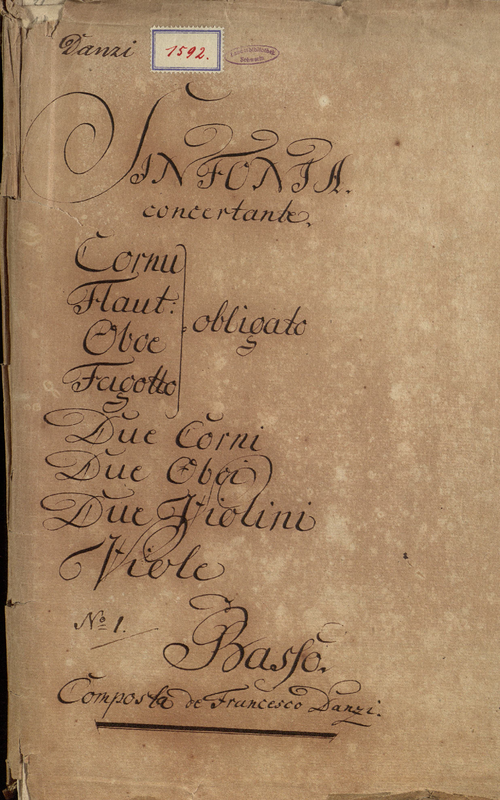 Danzi
1592.
SINFONIA.
concertante.
Cornu
Flaut:
Oboe
Fagotto
obligato
Due Corni
Due Oboi
Due Violini
Viole
No 1.
Basso.
Composta de Francesco Danzi.